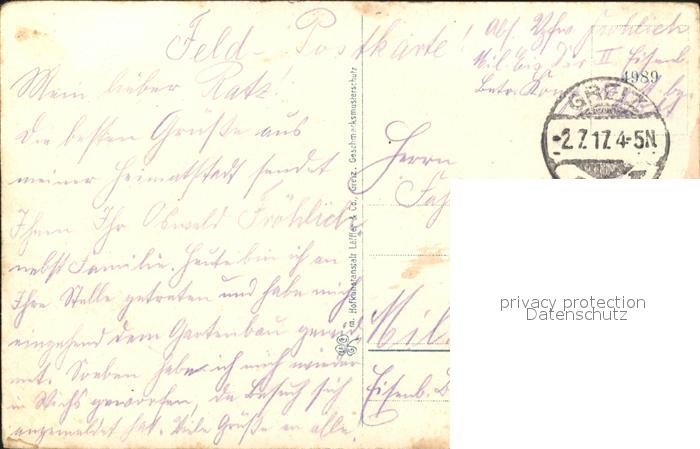 Feld-Postkarte!
Abs. Vzfw. Fröhlich
Mil. Eis. Dir. II Eisenb.
Betr.
4989
GREIZ
-2.7.17. 4-5N
Mein lieber Ratz!
Die besten Grüße aus
meiner Heimatstadt sendet
Ihnen Ihr Oswald Fröhlich
nebst Familie. Heute bin ich an
Ihre Stelle getreten und habe mich
eingehend dem Gartenbau gewid-
met. Soeben habe ich mich wieder
in Wichs geworfen, da Besuch sich
angemeldet hat. Viele Grüße an alle.
m. Hofkunstanstalt Löffler & Co., Greiz. Geschmacksmusterschutz
Herrn
Mil.
Eisenb.
privacy protection
Datenschutz